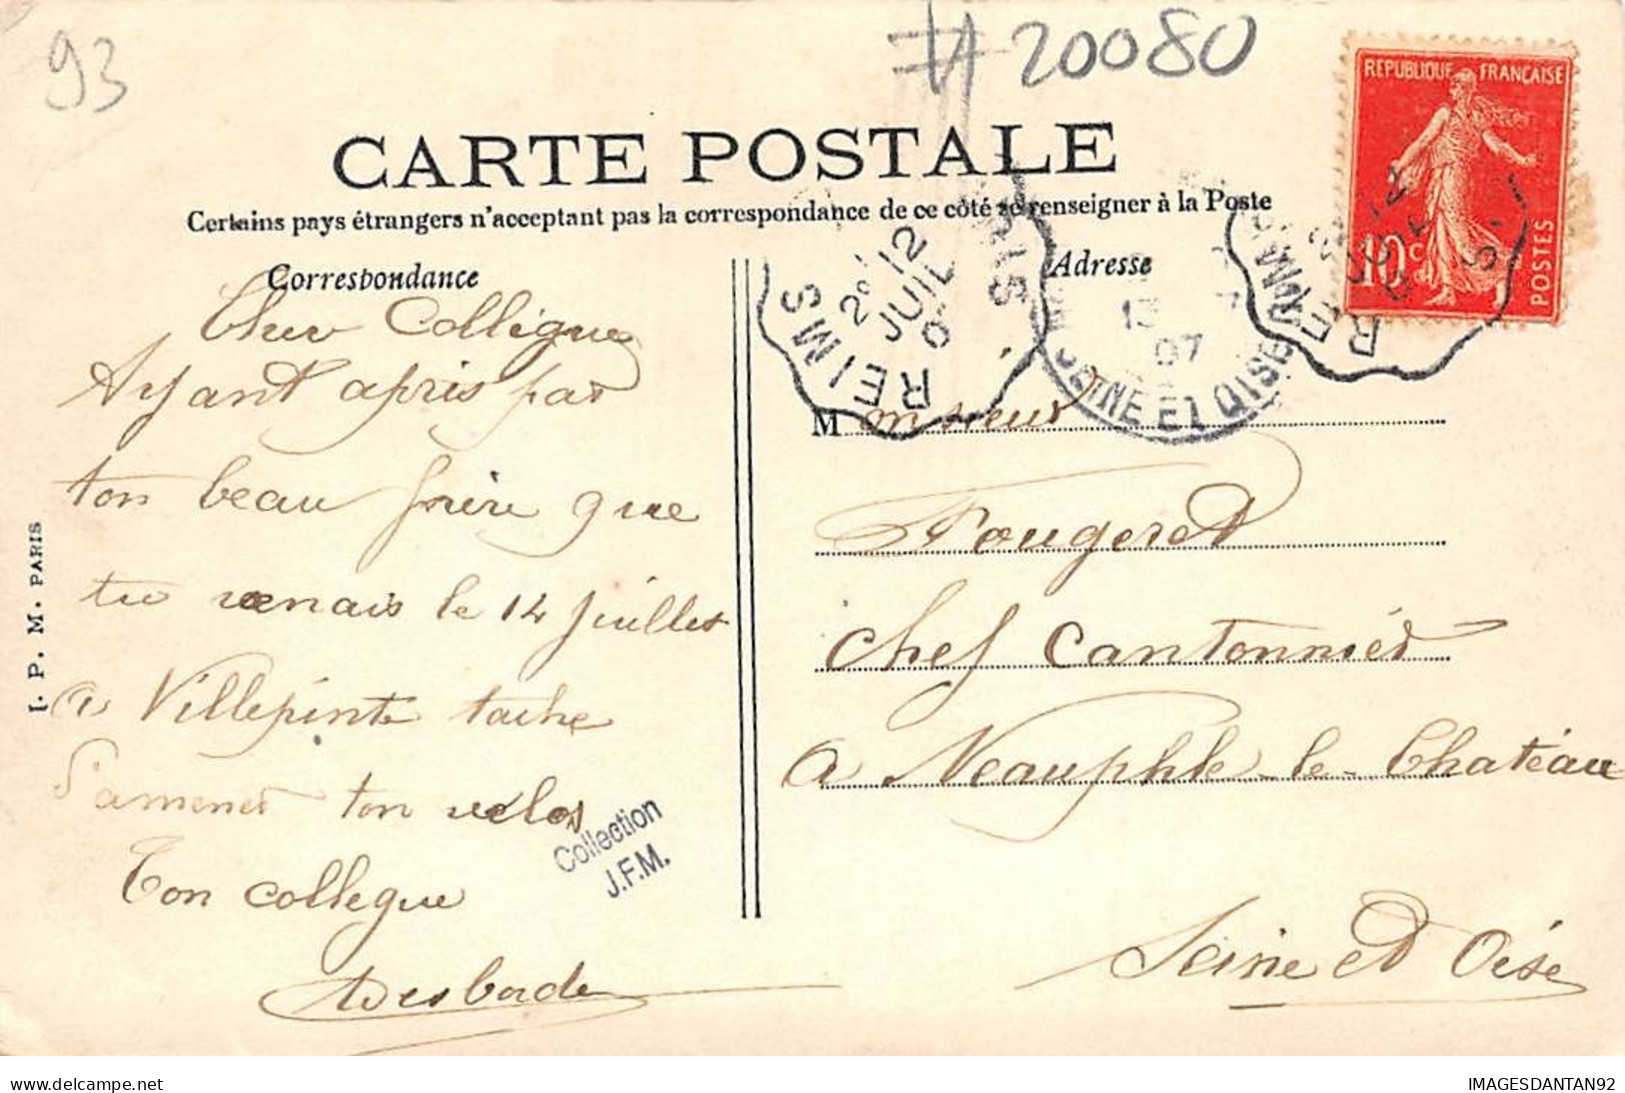 93
# 20080
REPUBLIQUE FRANCAISE
10c
POSTES
CARTE POSTALE
Certains pays étrangers n'acceptant pas la correspondance de ce côté se renseigner à la Poste
Correspondance
Adresse
Cher Collègue
Ayant apris par
ton beau frère que
tu venais le 14 Juillet
a Villepinte tache
d'amener ton velos
Ton collegue
Desborde
I. P. M. PARIS
Collection
J.F.M.
REIMS
2° 12
JUIL
REIMS
12
JUIL
13
07
SEINE ET OISE
Monsieur
Fougeret
chef Cantonnier
a Neauphle-le-Chatéau
Seine et Oise
delcampe.net
IMAGESDANTAN92